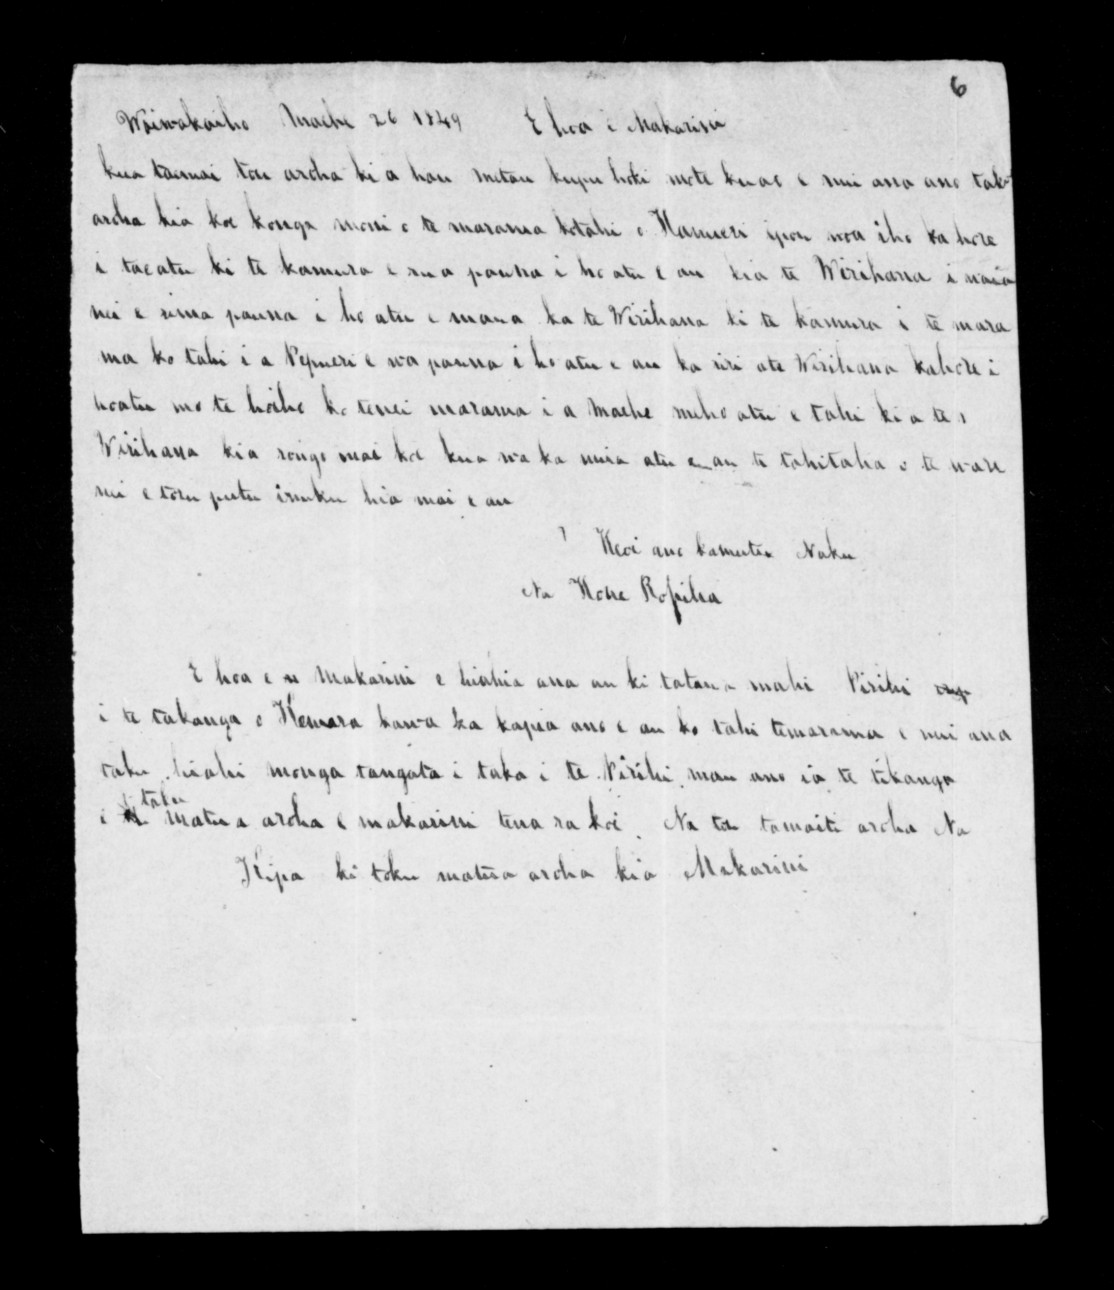 6
Waiwakaiho Maehe 26 1849 E hoa i Makarini
kua taemai tou aroha ki a hau metau kupu hoki mote kuao e nui ana ano taku
aroha kia koe konga moni o te marama kotahi o Hanueri ipou noa iho kahore
i taeatu ki te kamura e rua pauna i ho atu e au kia te Wirihana i naia
nei e rima pauna i ho atu e maua ka te Wirihana ki te kamura i te mara
ma ko tahi i a Pepueri e wa pauna i ho atu e au ka riri ate Wirihana kahore i
hoatu mo te hoiho ko tenei marama i a Maehe meho atu e tahi ki a te
Wirihana kia rongo mai koe kua wa ka nuia atu e au te tahitaha o te ware
nei e toru putu inuku hia mai e au
Heoi ano kamutu Naku
Na Hone Ropiha
E hoa e Makarini e hiahia ana au ki tatau mahi Pirihi
i te takanga o Hemara kawa ka kapia ano e au ko tahi temarama e nui ana
taku hiahi monga tangata i taka i te Pirihi mau ano ia te tikanga
taku
i matua aroha e makarini tena ra koe Na tou tamaiti aroha Na
Kipa ki toku matua aroha kia Makarini